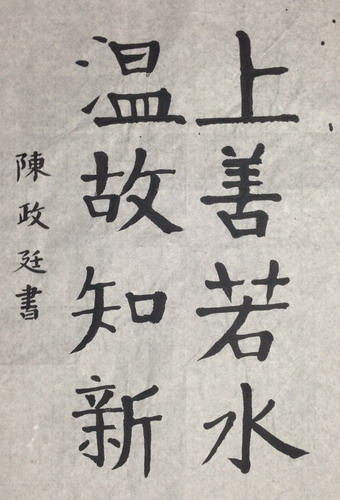 上善若水
温故知新
陳政廷書